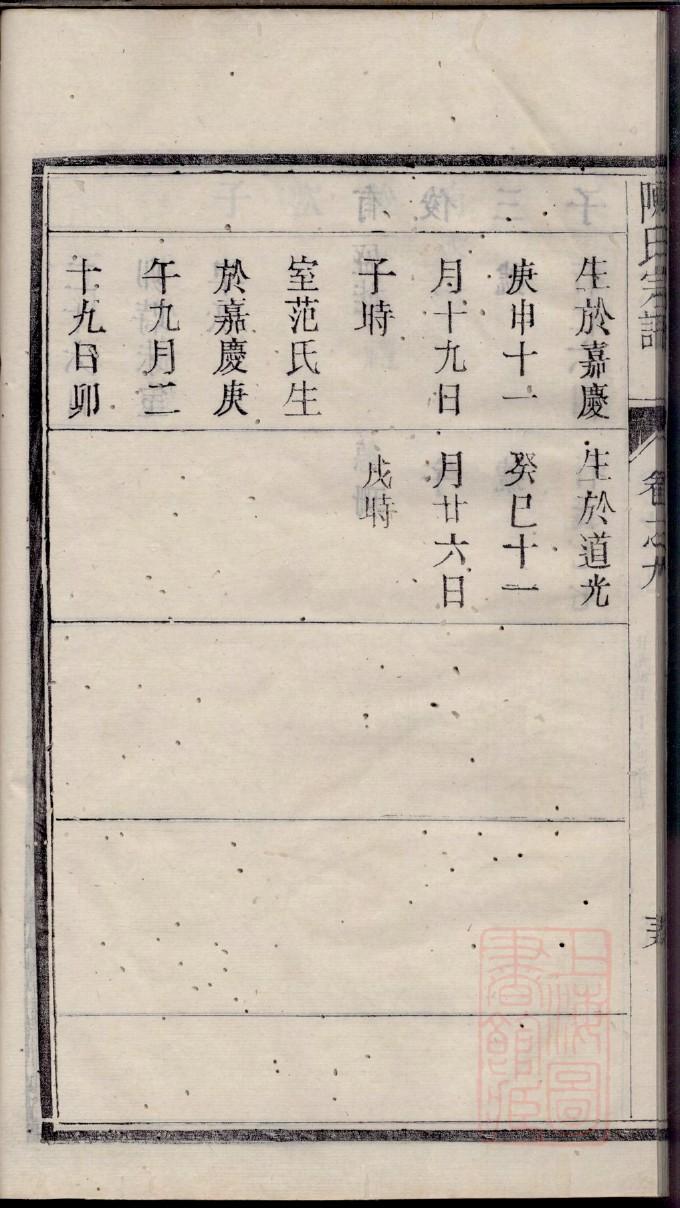 陳氏宗譜
卷之九
生於嘉慶
庚申十一
月十九日
子時
室范氏生
於嘉慶庚
午九月二
十九日卯
生於道光
癸巳十一
月廿六日
戌時
上海圖
書館臧